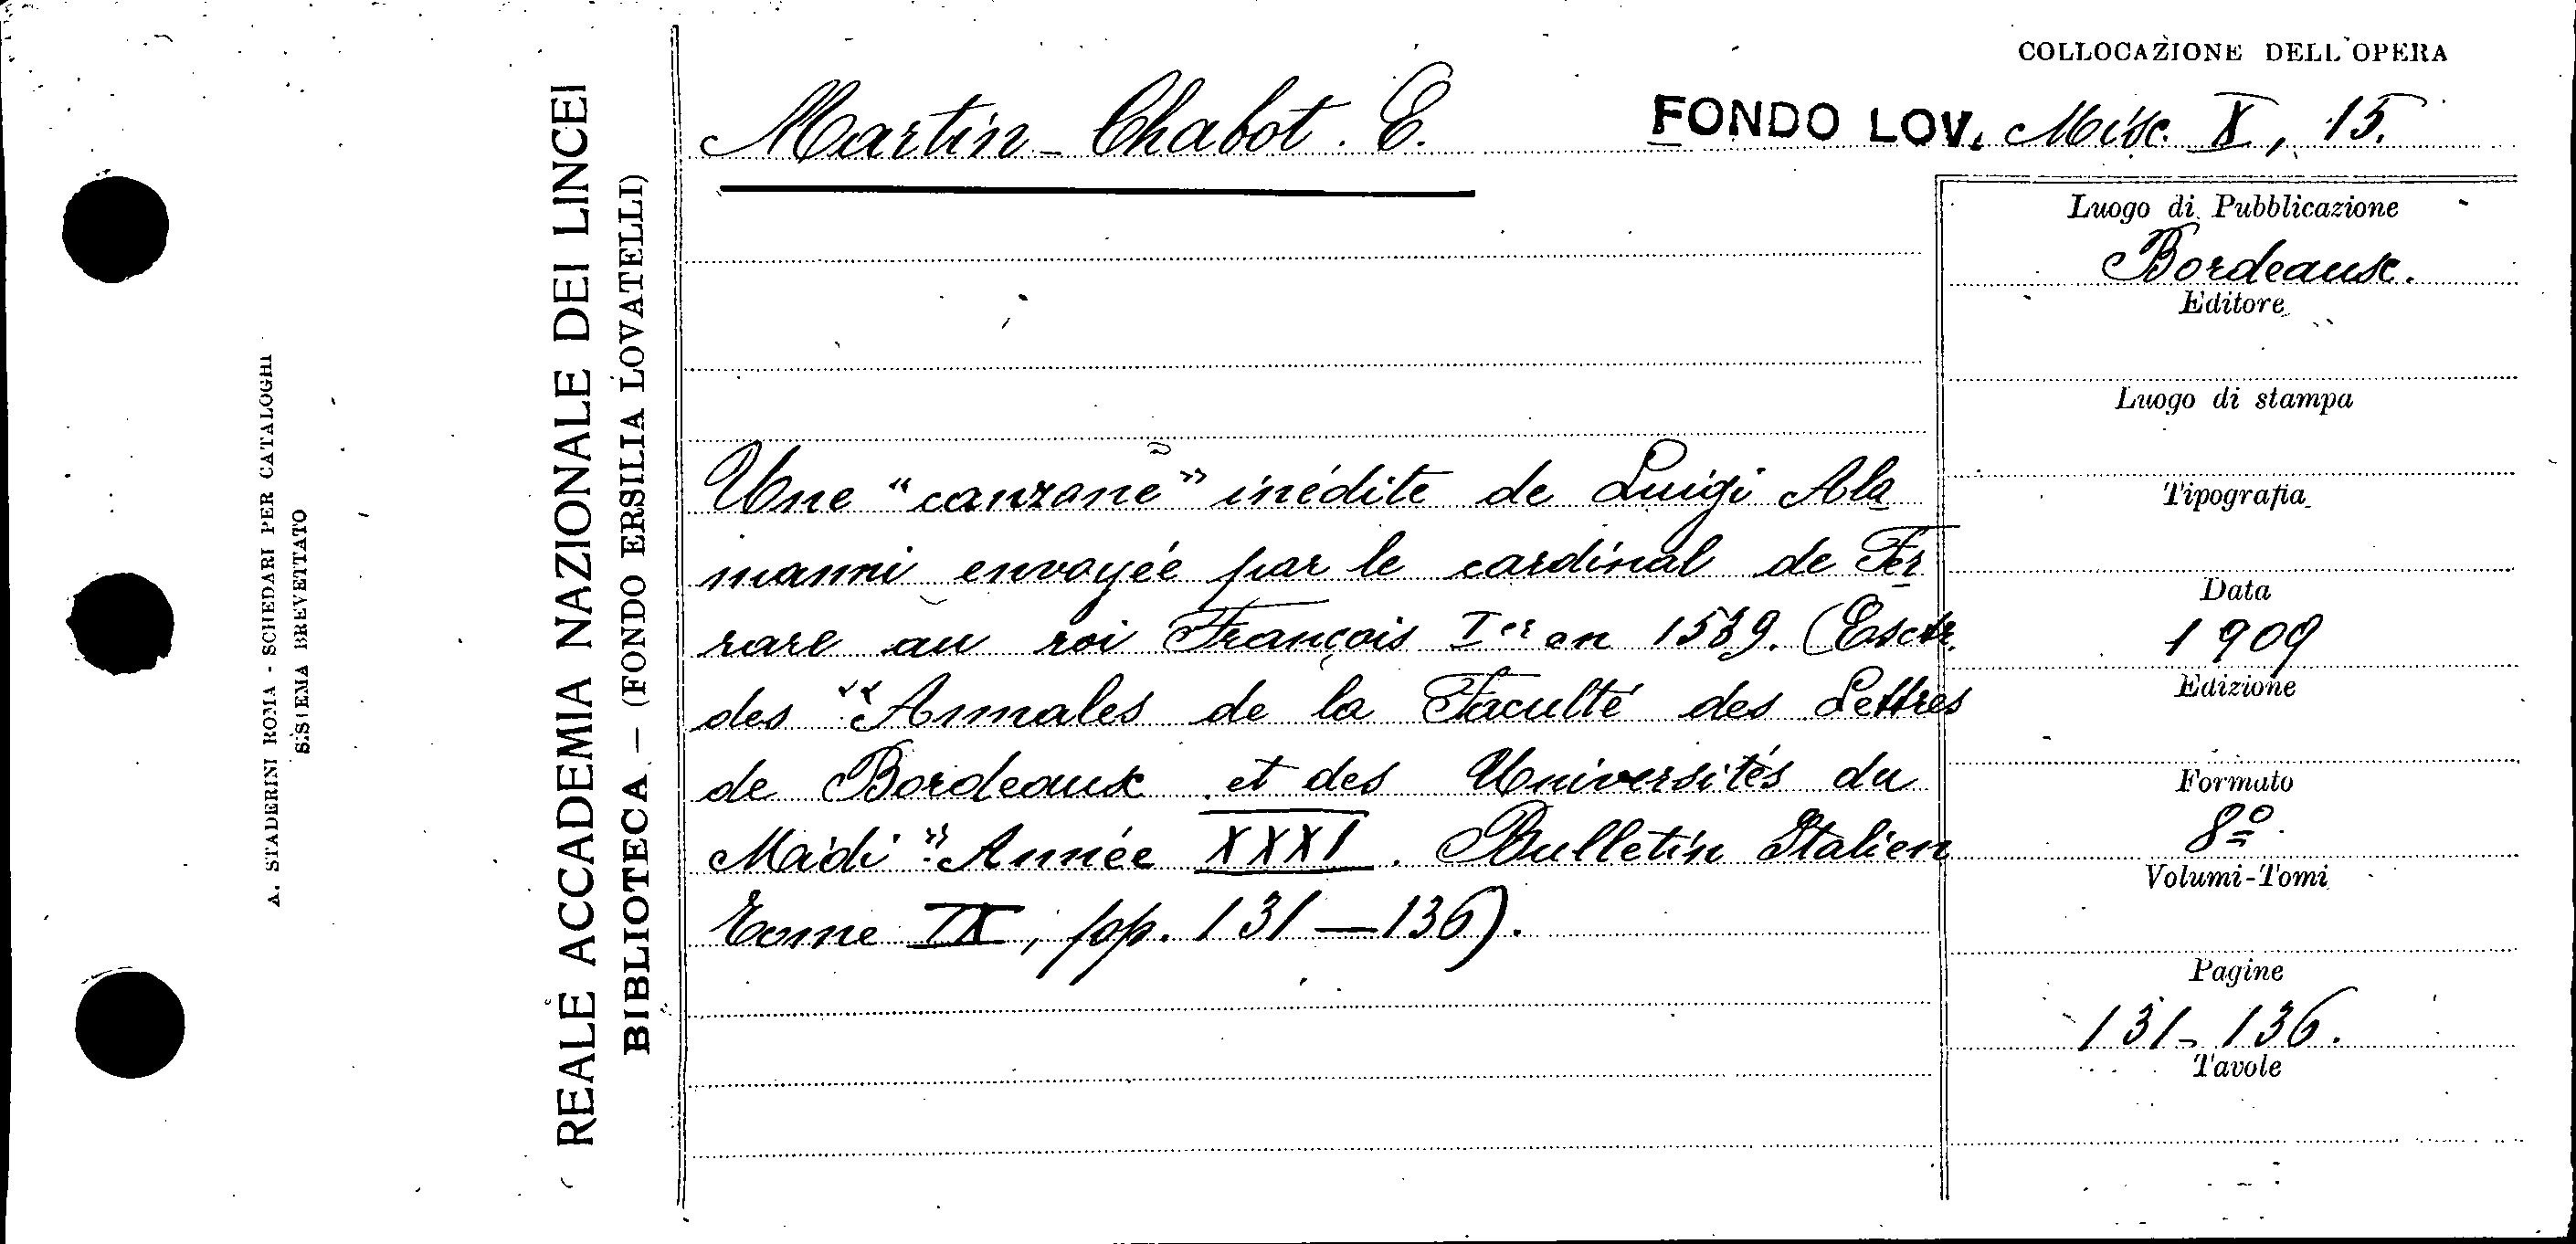 COLLOCAZIONE DELL'OPERA
Martin-Chabot. E.
FONDO LOV. Misc. X, 15.
Une "canzone" inédite de Luigi Ala
manni envoyée par le cardinal de Fer
rare au roi François Ier en 1539. (Extr.
des "Annales de la Faculté des Lettres
de Bordeaux et des Universités du
Midi" Année XXXI. Bulletin Italien
Tome IX, pp. 131-136).
Luogo di Pubblicazione
Bordeaux.
Editore
Luogo di stampa
Tipografia
Data
1909
Edizione
Formato
8º
Volumi-Tomi
Pagine
131-136.
Tavole
REALE ACCADEMIA NAZIONALE DEI LINCEI
BIBLIOTECA - (FONDO ERSILIA LOVATELLI)
A. STADERINI ROMA - SCHEDARI PER CATALOGHI
SISTEMA BREVETTATO